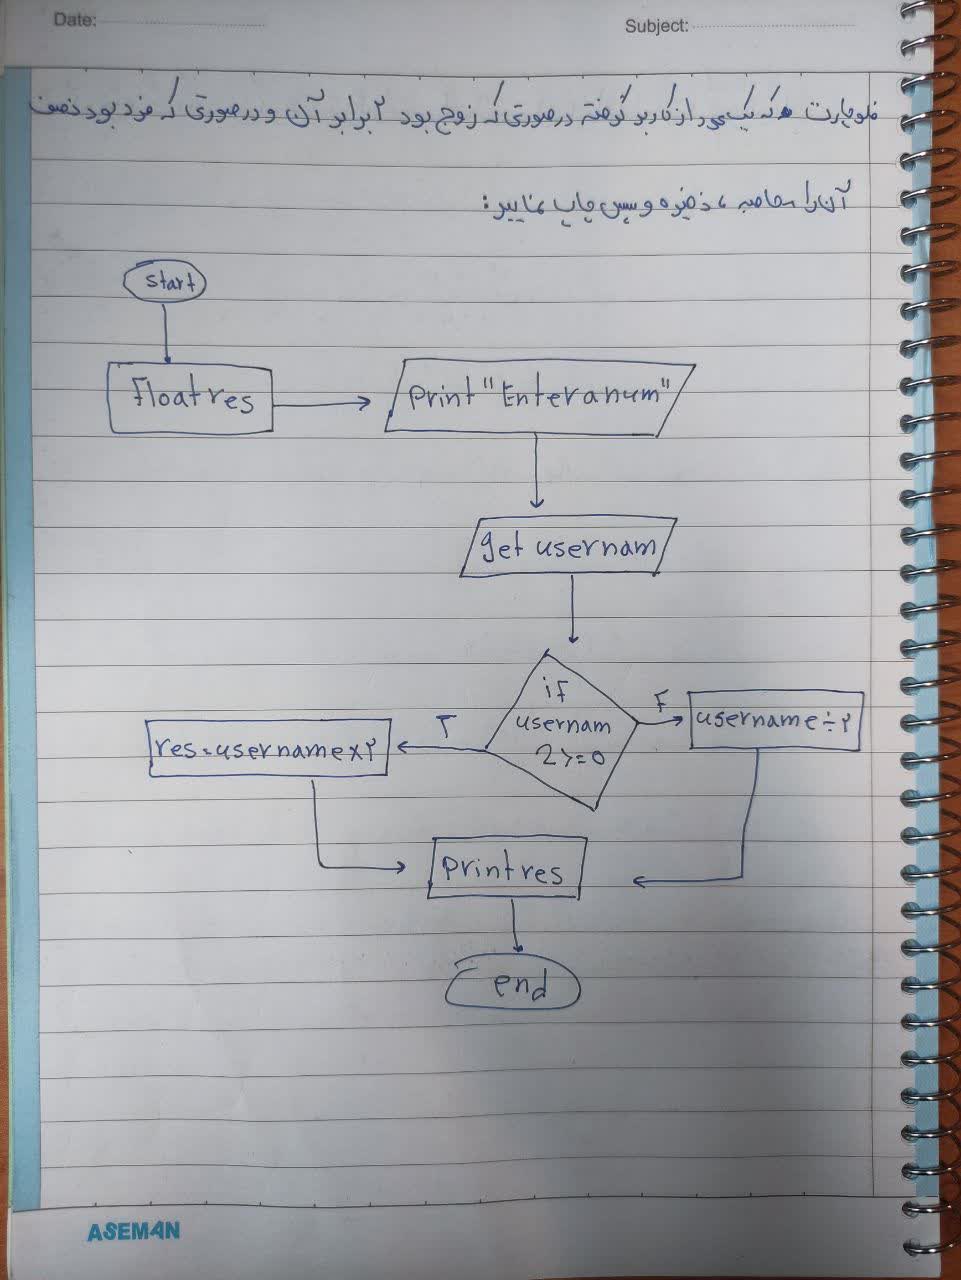 Date:
Subject:
فلوچارت که یک عدد از کاربر گرفته در صورتی که زوج بود ۲ برابر آن و در صورتی که فرد بود نصف
آن را محاصبه ، ذخیره و سپس چاپ نمایید:
start
float res
print "Enter a num"
get usernam
if
usernam
2>=0
F
username÷۲
T
res=username×۲
print res
end
ASEMAN